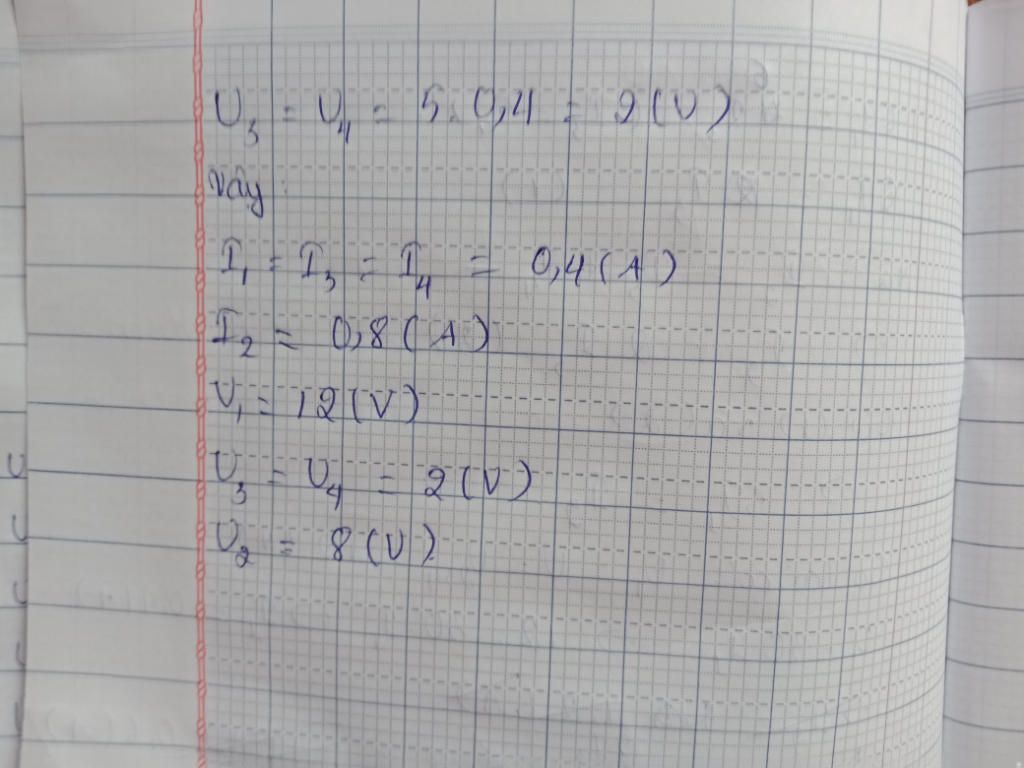 U₃ = U₄ = 5.0,4 = 2(V)
Vậy:
I₁ = I₃ = I₄ = 0,4(A)
I₂ = 0,8(A)
U₁ = 12(V)
U₃ = U₄ = 2(V)
U₂ = 8(V)